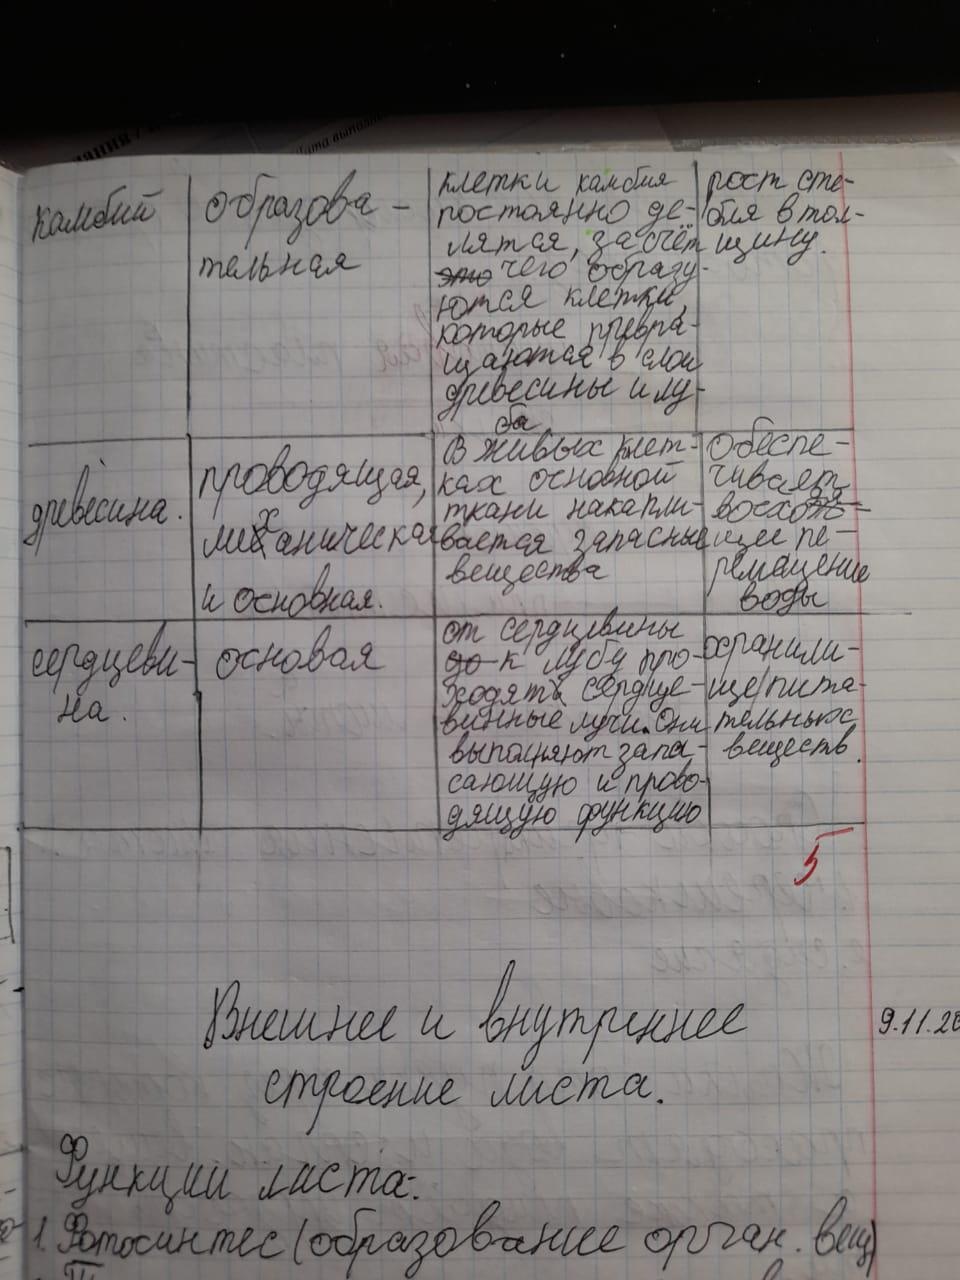 дата выполне
камбий
образова-
тельная
клетки камбия
постоянно де-
лятся, за счёт
это чего образу-
ются клетки,
которые превра-
щаются в слои
древесины и лу-
ба
рост сте-
бля в тол-
щину.
древесина.
проводящая,
механическая
и основная.
В живых клет-
ках основной
ткани накапли-
вается запасные
вещества
обеспе-
чивает
восходя-
щее пе-
ремещение
воды
сердцеви-
на.
основая
от сердцевины
до к лубу про-
ходят сердце-
винные лучи. Они
выполняют запа-
сающую и прово-
дящую функцию
хранили-
ще пита-
тельных
веществ.
5
Внешнее и внутреннее
9.11.20
строение листа.
Функции листа:
1. Фотосинтес (образование орган. вещ)